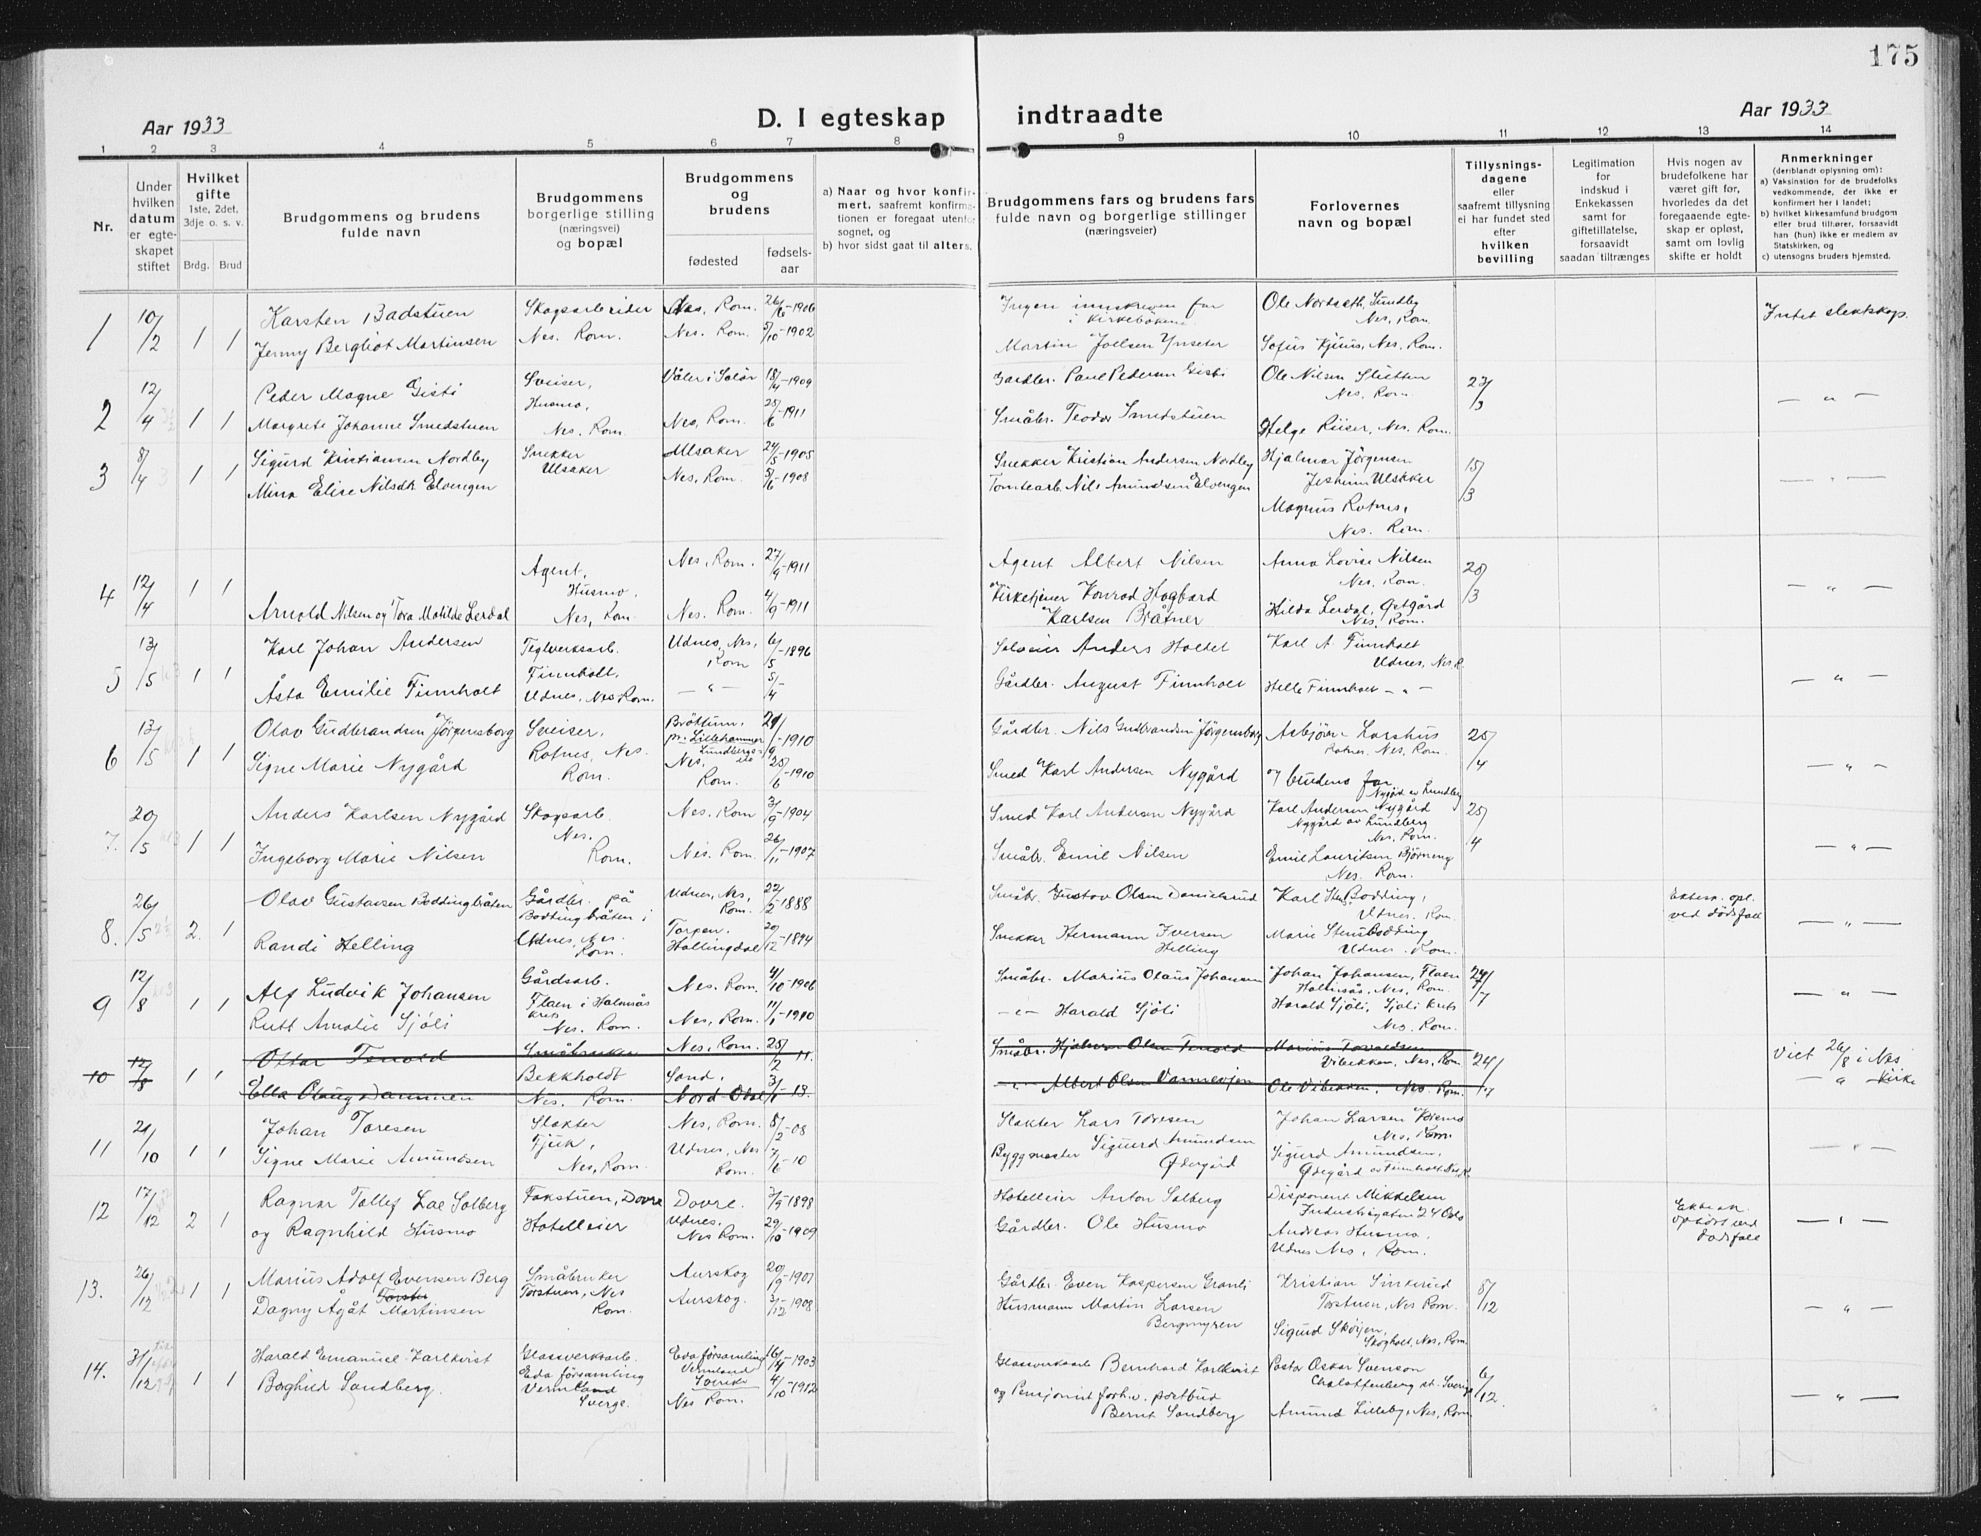 175
Aar 1933
D. I egteskap indtraadte
Aar 1933
1 2 3 4 5 6 7 8 9 10 11 12 13 14
Nr.
Under hvilken datum er egteskapet stiftet
Hvilket gifte
1ste, 2det, 3dje o. s. v.
Brdg. Brud
Brudgommens og brudens fulde navn
Brudgommens borgerlige stilling (næringsvei) og bopæl
Brudgommens og brudens
fødested
fødselsaar
a) Naar og hvor konfirmert, saafremt konfirmationen er foregaat utenfor sognet, og
b) hvor sidst gaat til alters.
Brudgommens fars og brudens fars fulde navn og borgerlige stillinger (næringsveier)
Forlovernes navn og bopæl
Tillysningsdagene eller saafremt tillysning ei har fundet sted efter hvilken bevilling
Legitimation for indskud i Enkekassen samt for giftetillatelse, forsaavidt saadan tiltrænges
Hvis nogen av brudefolkene har været gift før, hvorledes da det foregaaende egteskap er opløst, samt om lovlig skifte er holdt
Anmerkninger
(deriblandt oplysning om):
a) Vaksination for de brudefolks vedkommende, der ikke er konfirmert her i landet;
b) hvilket kirkesamfund brudgom eller brud tilhører, forsaavidt han (hun) ikke er medlem av Statskirken, og
c) utensogns bruders hjemsted.
1 10/2 1 1 Karsten Badstuen Skogsarbeider Nes, Rom. 26/6-1906 Ingen innskreven far i kirkeboken Ole Nordseth, Sundby Nes, Rom. Intet slektskap.
Jenny Bergliot Martinsen Nes. Rom. Nes. Rom. 5/10-1902 Martin Joelsen Ynseter Sofus Kjuus, Nes, Rom.
2 12/4 1 1 Peder Magne Gisti Sveiser, Våler i Solør 18/4-1909 Gårdbr. Paul Pedersen Gisti Ole Nilsen Sletten Nes, Rom. 23/3 — " —
Margrete Johanne Smedstuen Husmo, Nes. Rom. Nes, Rom. 25/6-1911 Småbr. Teodor Smedstuen Helge Riiser, Nes, Rom.
3 8/4 1 1 Sigurd Kristiansen Nordby Snekker Ulsaker 24/5-1905 Snekker Kristian Andersen Nordby Hjalmar Jörgensen 15/3 — " —
Mina Elise Nilsdtr. Elvengen Ulsaker Nes, Rom. 5/6-1908 Tomtearb. Nils Amundsen Elvengen Jesheim Ulsaker
Magnus Rotnes, Nes. Rom.
4 12/4 1 1 Agent, Husmo, Nes, Rom. Nes, Rom. 27/9-1911 Agent Albert Nilsen Anna Lovise Nilsen Nes, Rom. 25/3 — " —
Arnold Nilsen og Tora Matilde Lerdal Nes. Rom. 4/9-1911 Kirketjener Konrad Hagbard Karlsen Bråtner Hilda Lerdal, Østgård Nes. Rom.
5 13/5 1 1 Karl Johan Andersen Teglverksarb. Udnes, Nes, Rom 6/5-1896 Salveier Anders Holtet Karl A. Finnholt Udnes, Nes R.
Åsta Emilie Finnholt Finnholt, Udnes, Nes Rom. — " — 5/4 Gårdbr. August Finnholt Helle Finnholt — " — — " —
6 13/5 1 1 Olav Gudbrandsen Jörgensborg Sveiser, Brøttum, pr. Lillehammer 1910 Gårdbr. Nils Gudbrandsen Jörgensborg Asbjörn Larshus Rotnes, Nes. Rom. 25/4
Signe Marie Nygård Rotnes, Nes. Rom. Nes, Rom. 25/6-1910 Smed Karl Andersen Nygård og brudens far — " —
7. 20/5 1 1 Anders Karlsen Nygård Skogsarb. Nes. Rom 3/9-1904 Smed Karl Andersen Nygård Karl Andersen Nygård Nygård av Lundberg Nes, Rom. 25/4
Ingeborg Marie Nilsen Nes. Rom. Nes. Rom. 26/11-1907 Småbr. Emil Nilsen Emil Lauritsen Björneng Nes, Rom. — " —
8. 26/5 2. 1 Olav Gustavsen Boddingbråten Gårdbr. på Boddingbråten i Udnes, Nes. Rom. Udnes, Nes, Rom. 22/2-1888 Småbr. Gustav Olsen Danielsrud Karl Bodding, Udnes. Rom. Ektesk. opl. ved dödsfall
Randi Helling Torpen, Hallingdal 20/12-1894 Snekker Hermann Iversen Helling Marie Bodding Udnes. Rom. — " —
9 12/8 1 1 Alf Ludvik Johansen Gårdsarb. Nes. Rom. 4/10-1906 Småbr. Marius Olaus Johansen Johan Johansen, Flaen Holmsås, Nes, Rom. 24/7
Rutt Amalie Sjöli Flaen i Holmsås krets Nes. Rom. Nes, Rom. 11/1-1910 — " — Harald Sjöli Harald Sjöli, Sjöli krets Nes. Rom. — " —
10 12/8 1 1 Ottar Tenold Småbruker Nes, Rom. 25/2 11. Småbr. Hjalmar Olsen Tenold Vibekken, Nes, Rom. Viet 26/8 i Nes kirke
Bekkholdt Nes. Rom. Sand, Nord Odal 13. — " — Albert Olsen Ole Vibekken, Nes. Rom. — " —
11 21/10 1 1 Johan Toresen Slakter Nes, Rom. 5/2-08 Slakter Lars Toresen Johan Larsen Nes, Rom.
Signe Marie Amundsen Fjuk, Nes, Rom. Udnes, Nes Rom. 7/6-10 Byggmester Sigurd Amundsen Ødegård Sigurd Amundsen, Ødegård av Finnholt Nes R. — " —
12 17/12 2 1 Ragnar Tollef Lae Solberg Fokstuen, Dovre Dovre. 3/9-1898 Hotelleier Anton Solberg Disponent Mikkelsen Industrigaten 24 Oslo Ektesk. ophört ved dödsfall
og Ragnhild Husmo Hotelleier Udnes. Nes Rom. 29/10-1909 Gårdbr. Ole Husmo Andreas Husmo, Udnes Nes, Rom. — " —
13. 26/12 1 1 Marius Adolf Evensen Berg Småbruker Aurskog 20/9-1907 Gårdbr. Even Kaspersen Granli Kristian Sinkerud Torstuen, Nes Rom. 8/12
Dagny Ågåt Martinsen Torstuen, Nes Rom. Aurskog. 3/12-1908 Husmann Martin Larsen Bergmyren Sigurd Sköijen, Skogholt, Nes, Rom. — " —
14. 31/12 1 1 Harald Emanuel Karlkvist Glassverksarb. Eda församling Vermland Sverike 16/4-1903 Glassverksarb Bernhard Karlkvist Pastor Oskar Svenson Charlottenberg st. Sverige 6/12
Borghild Sandberg. Eda församling Vermland Sverge. Nes Rom. 4/10-1912 og Pensjonist forhv. postbud Bernt Sandberg Amund Lilleby, Nes, Rom. — " —